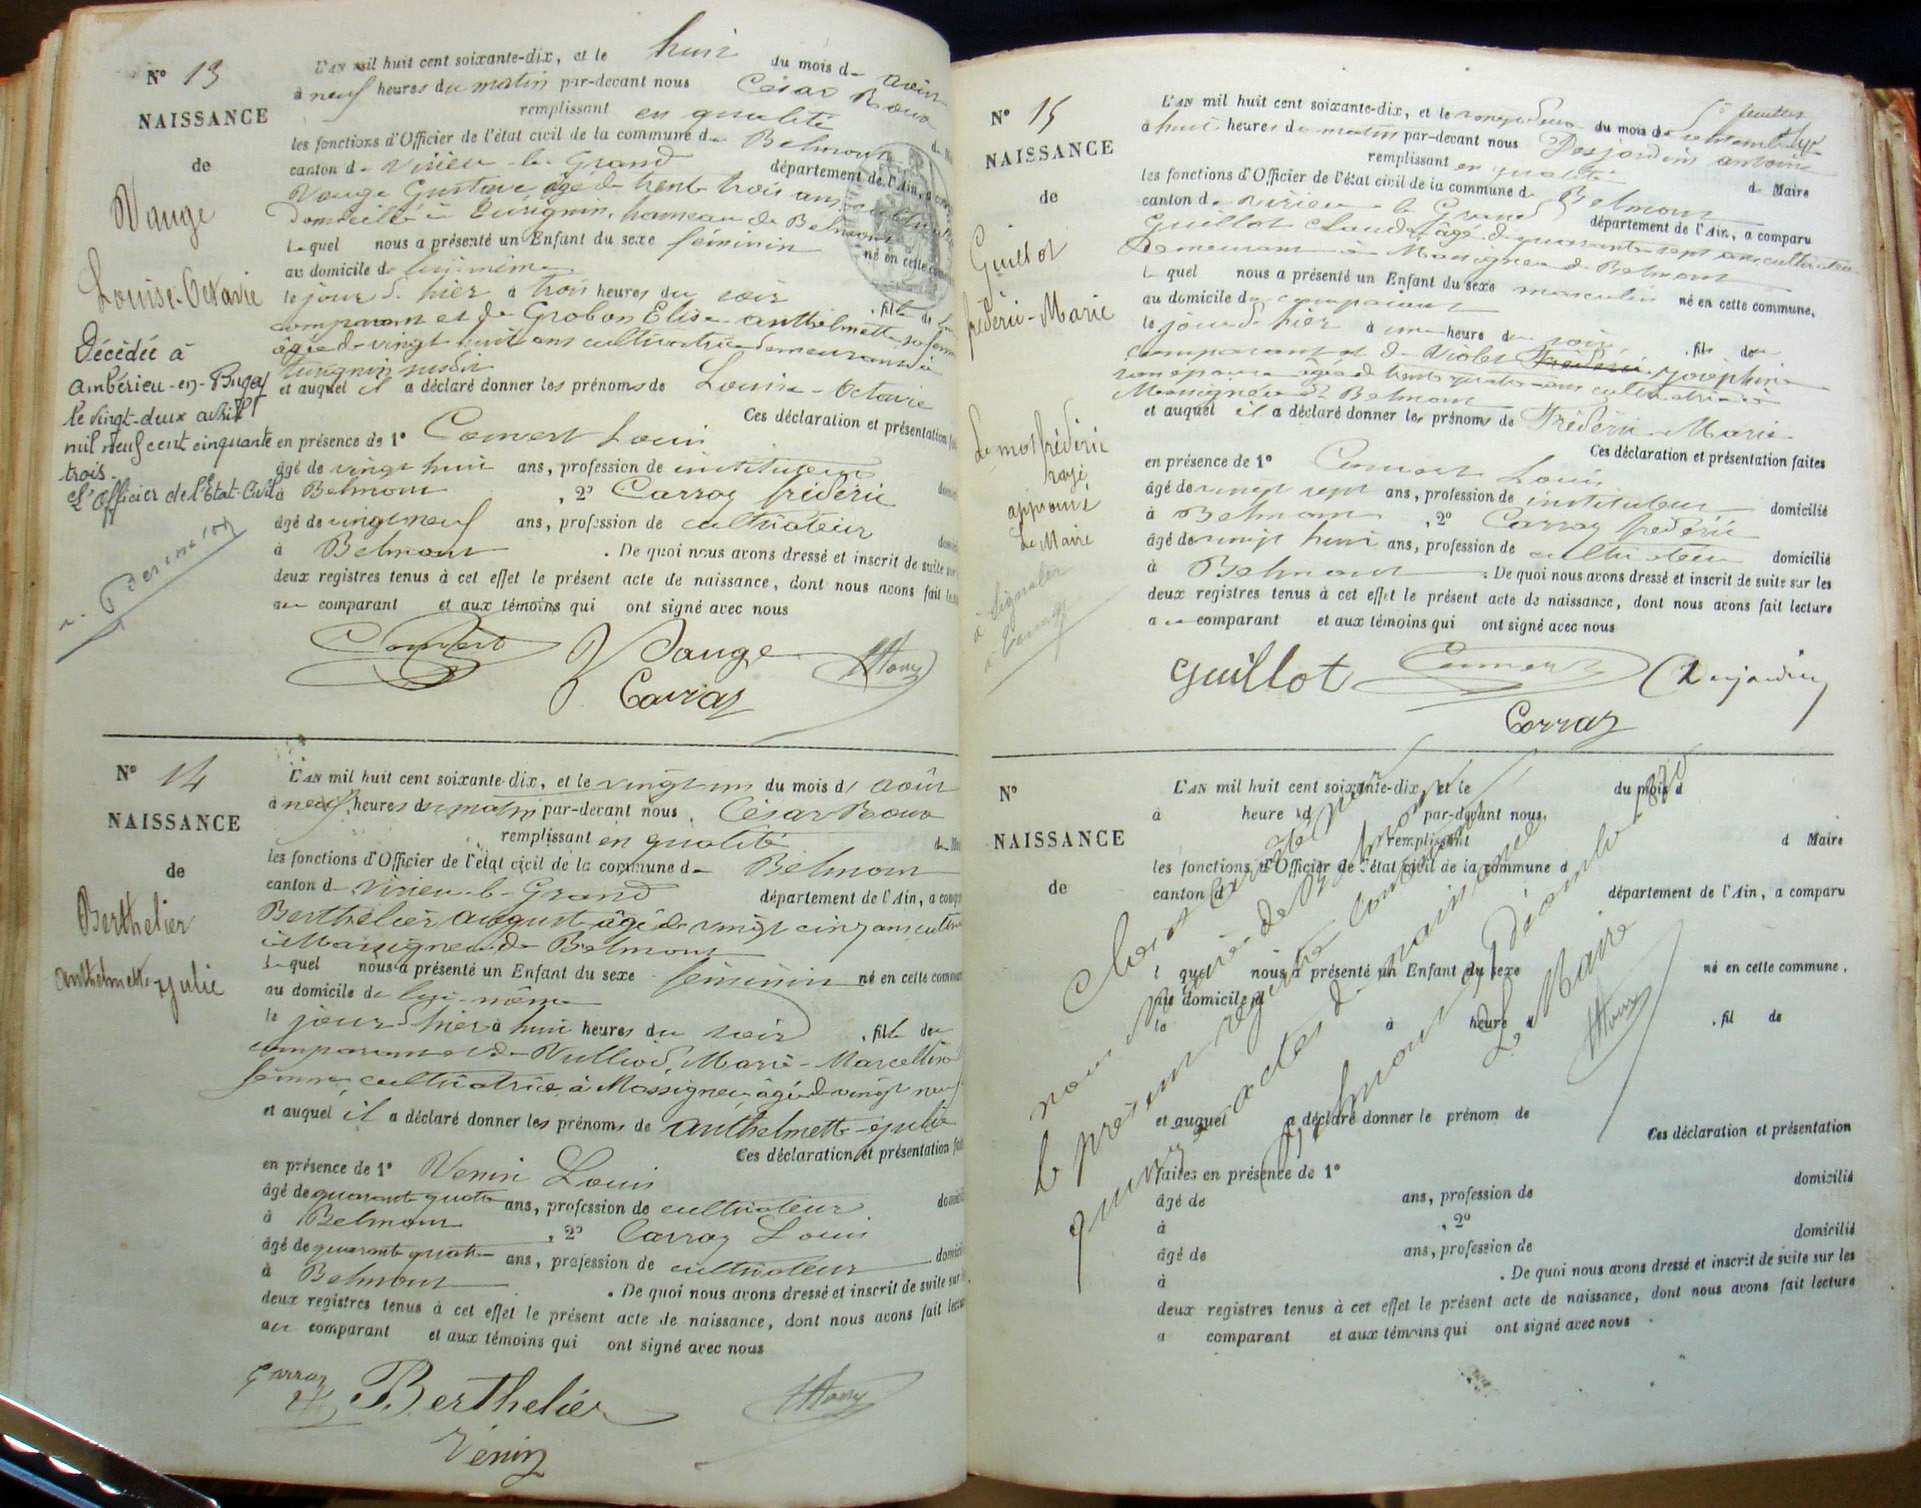 N° 13
NAISSANCE
de
Vauge
Louise-Octavie
Décédée à
Ambérieu-en-Bugey
le vingt-deux avril
mil neuf cent cinquante
trois.
L'Officier de l'Etat-Civil
L'AN mil huit cent soixante-dix, et le huit du mois d'
à neuf heures du matin par-devant nous César
remplissant en qualité
les fonctions d'Officier de l'état civil de la commune de Belmont
canton de Virieu-le-Grand département de l'Ain, a
Vauge Gustave âgé de trente trois ans
domicilié à hameau de Belmont
Lequel nous a présenté un Enfant du sexe féminin né en cette
au domicile de lui-même
le jour d'hier à trois heures du soir , fille de
comparant et de Grobon Elise anthelmette sa femme
âgée de vingt huit ans cultivatrice demeurant à
susdit
et auquel il a déclaré donner les prénoms de Louise-Octavie
Ces déclaration et présentation
en présence de 1° Comert Louis
âgé de vingt huit ans, profession de instituteur
à Belmont , 2° Carraz frédéric
âgé de vingt neuf ans, profession de cultivateur
à Belmont . De quoi nous avons dressé et inscrit de suite sur
deux registres tenus à cet effet le présent acte de naissance, dont nous avons fait
au comparant et aux témoins qui ont signé avec nous
Vauge
Carraz
N° 14
NAISSANCE
de
Berthelier
anthelmette-julie
L'AN mil huit cent soixante-dix, et le vingt un du mois d' août
à neuf heures du matin par-devant nous César
remplissant en qualité
les fonctions d'Officier de l'état civil de la commune de Belmont
canton de Virieu-le-Grand département de l'Ain, a
Berthelier auguste âgé de vingt cinq ans
à Massigneu de Belmont
Lequel nous a présenté un Enfant du sexe féminin né en cette
au domicile de lui-même
le jour d'hier à huit heures du soir , fille du
comparant et de Vulliod, Marie-Marcelline
femme, cultivatrice à Massigneu, âgée de vingt neuf
et auquel il a déclaré donner les prénoms de anthelmette-julie
Ces déclaration et présentation
en présence de 1° Venin Louis
âgé de quarante quatre ans, profession de cultivateur
à Belmont , 2° Carraz Louis
âgé de quarante quatre ans, profession de cultivateur
à Belmont . De quoi nous avons dressé et inscrit de suite sur
deux registres tenus à cet effet le présent acte de naissance, dont nous avons fait
au comparant et aux témoins qui ont signé avec nous
Carraz
Berthelier
Vénin
N° 15
NAISSANCE
de
Guillot
frédéric-Marie
Le mot frédéric
rayé
approuvé
Le Maire
à signaler
L'AN mil huit cent soixante-dix, et le vingt deux du mois de septembre
à huit heures du matin par-devant nous Desjardins antoine
remplissant en qualité de Maire
les fonctions d'Officier de l'état civil de la commune de Belmont
canton de Virieu-le-Grand département de l'Ain, a comparu
Guillot Claude âgé de quarante sept ans cultivateur
demeurant à Massigneu de Belmont
Lequel nous a présenté un Enfant du sexe masculin né en cette commune,
au domicile du comparant
le jour d'hier à une heure du soir , fils du
comparant et de Violet Frédéric joséphine
son épouse âgée de trente quatre ans cultivatrice à
Massigneu de Belmont
et auquel il a déclaré donner les prénoms de Frédéric-Marie
Ces déclaration et présentation faites
en présence de 1° Comert Louis
âgé de vingt sept ans, profession de instituteur domicilié
à Belmont , 2° Carraz frédéric
âgé de vingt huit ans, profession de cultivateur domicilié
à Belmont . De quoi nous avons dressé et inscrit de suite sur les
deux registres tenus à cet effet le présent acte de naissance, dont nous avons fait lecture
au comparant et aux témoins qui ont signé avec nous
Guillot
Desjardins
Carraz
N°
NAISSANCE
de
L'AN mil huit cent soixante-dix, et le du mois d
à heure d par-devant nous,
remplissant d Maire
les fonctions d'Officier de l'état civil de la commune d
canton d département de l'Ain, a comparu
l quel nous a présenté un Enfant du sexe né en cette commune,
au domicile d
le à heure d , fil de
et auquel a déclaré donner le prénom de
Ces déclaration et présentation
faites en présence de 1° domicilié
âgé de ans, profession de
à , 2° domicilié
âgé de ans, profession de
à . De quoi nous avons dressé et inscrit de suite sur les
deux registres tenus à cet effet le présent acte de naissance, dont nous avons fait lecture
a comparant et aux témoins qui ont signé avec nous
Clos et arrêté par
nous Maire de Belmont
le présent registre contenant
quinze actes de naissance
Belmont décembre 1870
Le Maire